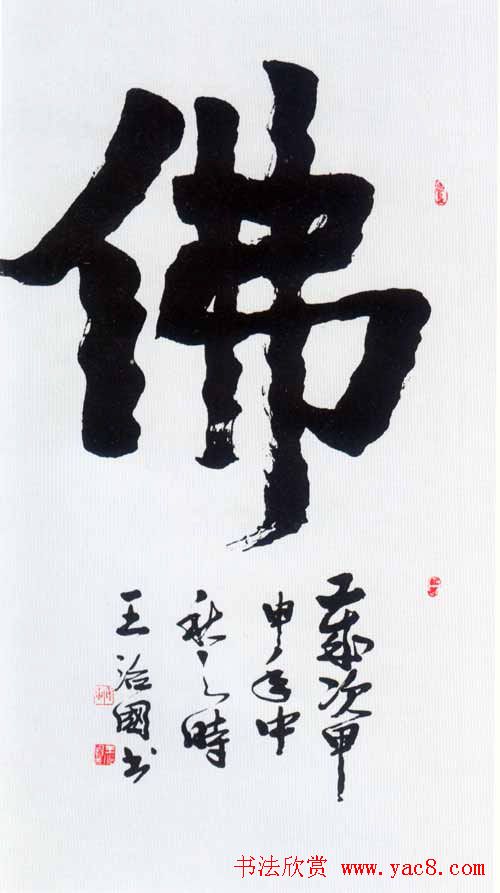 佛
岁次甲
申年中
秋之時
王治國书
书法欣赏 www.yac8.com